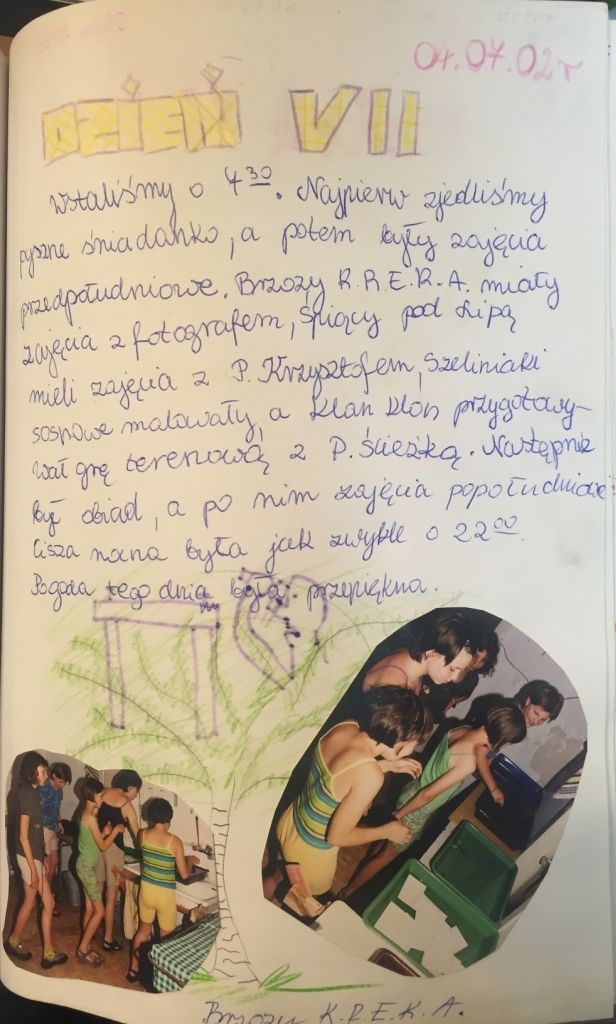 04.07.02r
DZIEŃ VII
Wstaliśmy o 7³⁰. Najpierw zjedliśmy
pyszne śniadanko, a potem były zajęcia
przedpołudniowe. Brzozy K.R.E.K.A. miały
zajęcia z fotografem, Śpiący pod Lipą
mieli zajęcia z P. Krzysztofem, Szeliniaki
sosnowe malowały, a Klan Klon przygotowy-
wał grę terenową z P. Ścieżką. Następnie
był obiad, a po nim zajęcia popołudniowe
Cisza nocna była jak zwykle o 22⁰⁰.
Pogoda tego dnia była przepiękna.
Brzozy K.R.E.K.A.